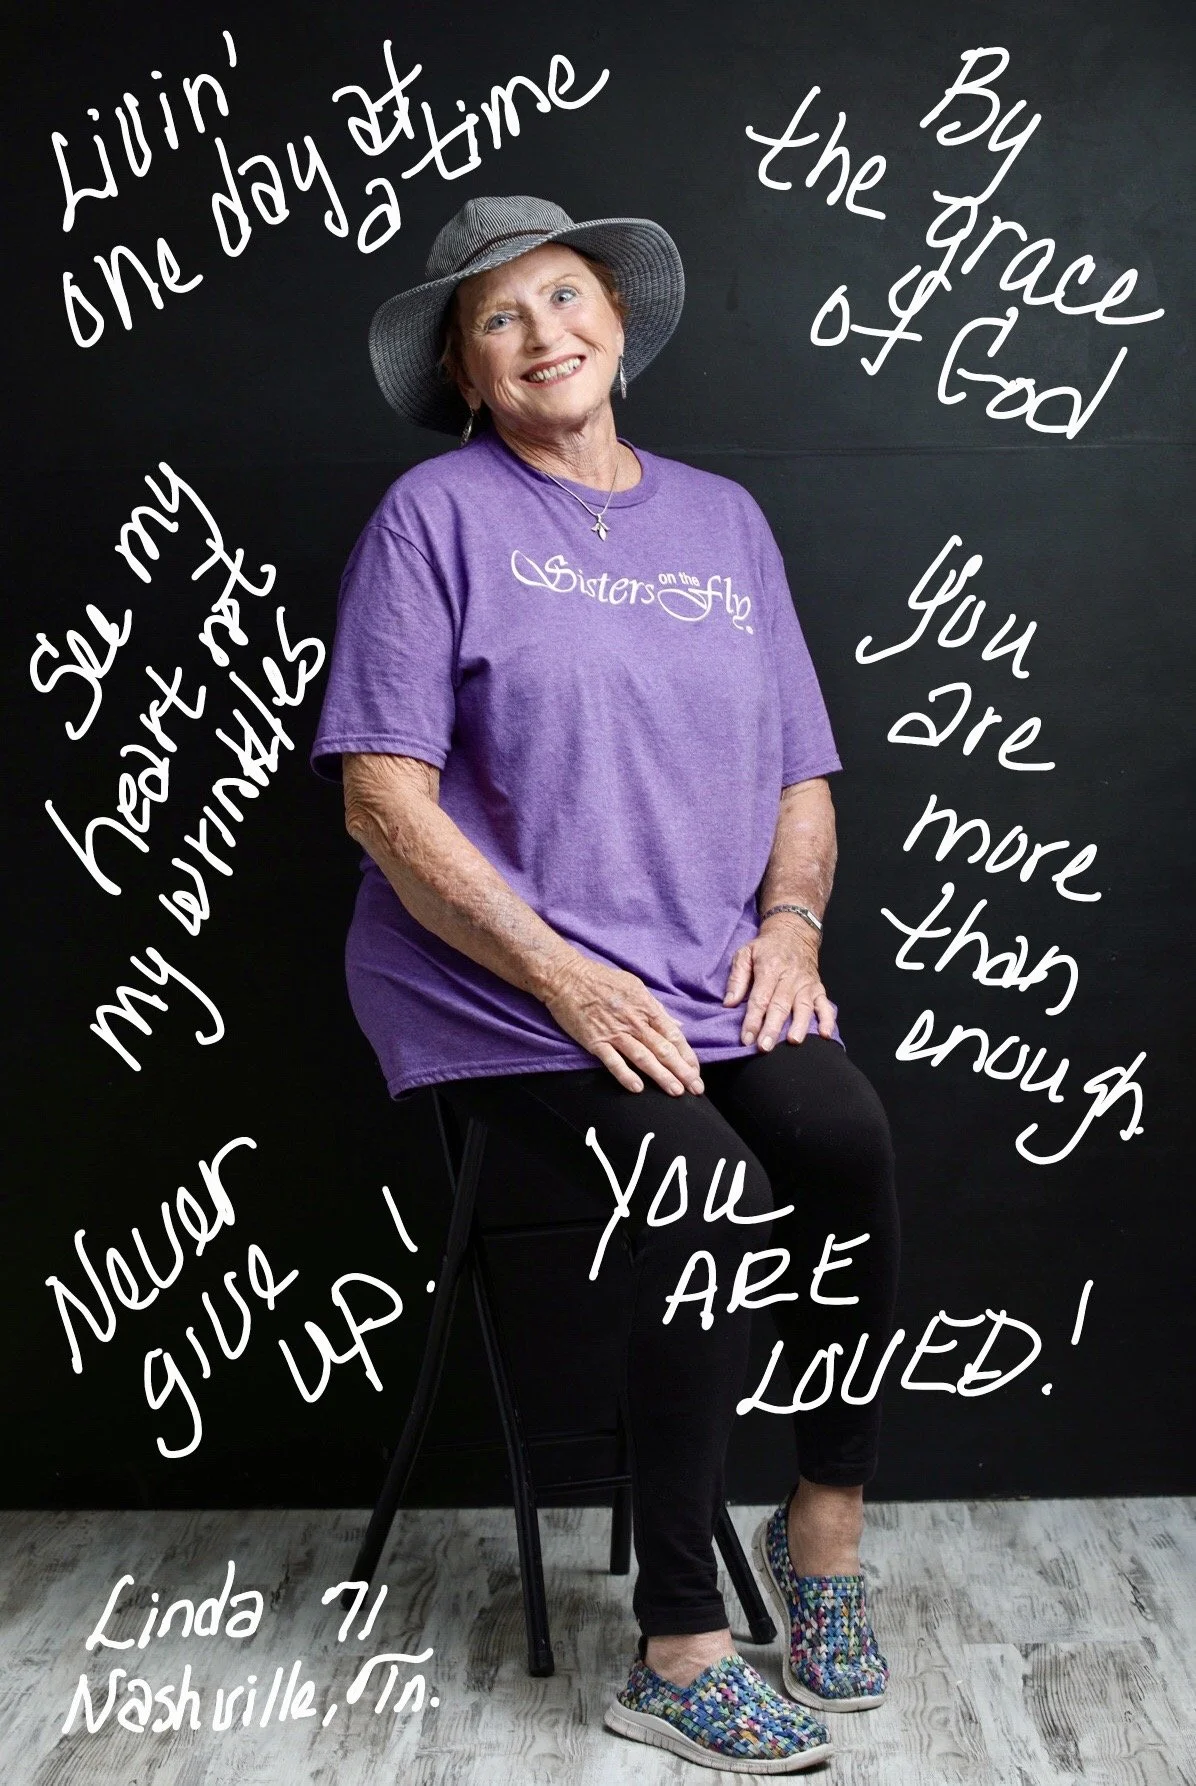 Livin'
one day at
a time
By
the grace
of God
See my
heart not
my wrinkles
Sisters on the Fly.
You
are
more
than
enough.
Never
give
up!
YOU
ARE
LOVED!
Linda 71
Nashville, Tn.